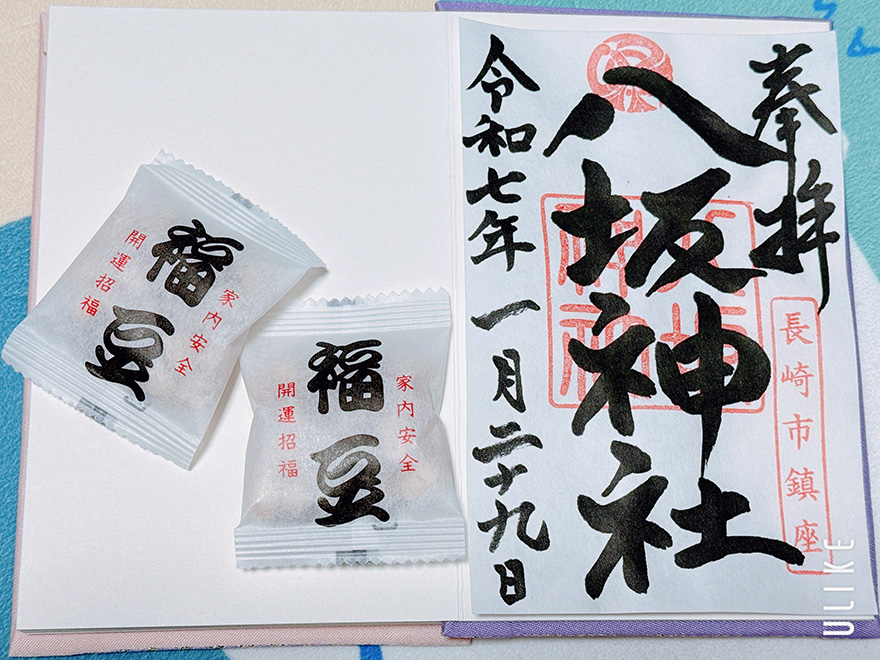 奉拝
長崎市鎮座
八坂神社
令和七年一月二十九日
家内安全
福豆
開運招福
家内安全
福豆
開運招福
ULIKE